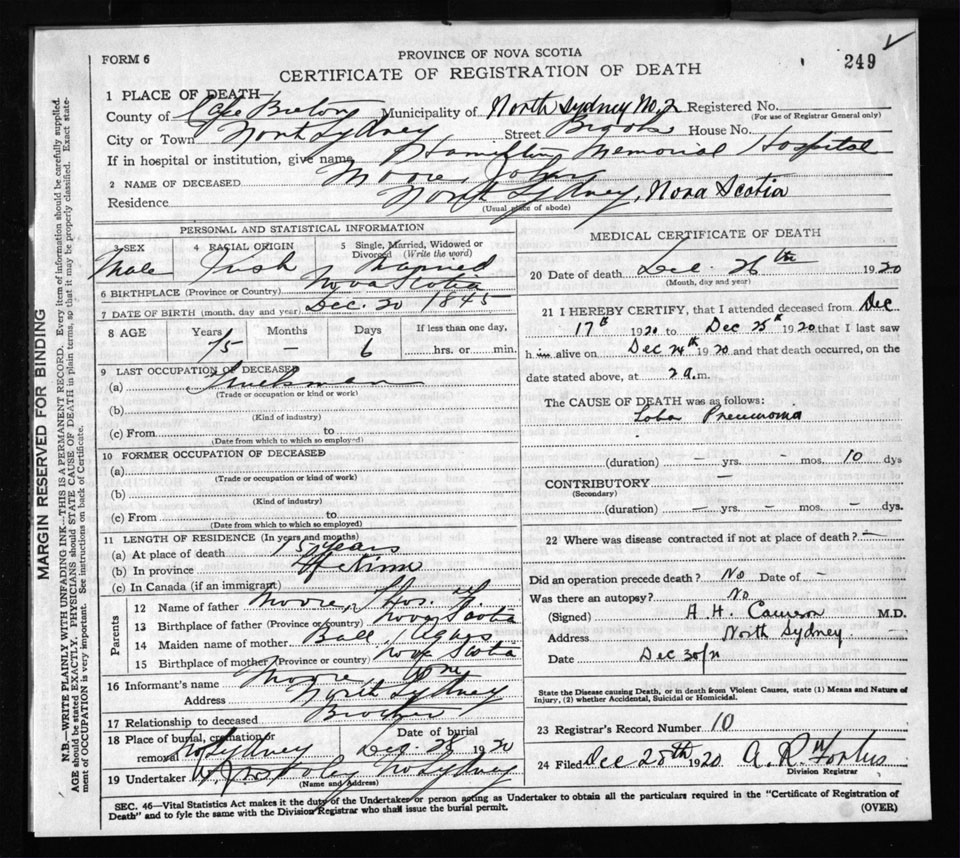 FORM 6
PROVINCE OF NOVA SCOTIA
249
CERTIFICATE OF REGISTRATION OF DEATH
1 PLACE OF DEATH
County of Cape Breton Municipality of North Sydney No. 2 Registered No.
(For use of Registrar General only)
City or Town North Sydney Street Brooks House No.
If in hospital or institution, give name Hamilton Memorial Hospital
2 NAME OF DECEASED Moore, John
Residence North Sydney, Nova Scotia
(Usual place of abode)
PERSONAL AND STATISTICAL INFORMATION
3 SEX Male 4 RACIAL ORIGIN Irish 5 Single, Married, Widowed or Divorced (Write the word) Married
6 BIRTHPLACE (Province or Country) Nova Scotia
7 DATE OF BIRTH (month, day and year) Dec. 20 1845
8 AGE Years Months Days If less than one day,
75 - 6 hrs. or min.
9 LAST OCCUPATION OF DECEASED
(a) Truckman
(Trade or occupation or kind or work)
(b)
(Kind of industry)
(c) From to
(Date from which to which so employed)
10 FORMER OCCUPATION OF DECEASED
(a)
(Trade or occupation or kind of work)
(b)
(Kind of industry)
(c) From to
(Date from which to which so employed)
11 LENGTH OF RESIDENCE (In years and months)
(a) At place of death years
(b) In province Life time
(c) In Canada (if an immigrant)
Parents
12 Name of father Moore, Thos.
13 Birthplace of father (Province or country) Nova Scotia
14 Maiden name of mother Ball Agnes
15 Birthplace of mother (Province or country) Nova Scotia
16 Informant's name Moore Wm.
Address North Sydney
17 Relationship to deceased Brother
18 Place of burial, cremation or removal No Sydney Date of burial Dec. 28 1920
19 Undertaker No Sydney
(Name and Address)
MEDICAL CERTIFICATE OF DEATH
20 Date of death Dec. 26th 1920
(Month, day and year)
21 I HEREBY CERTIFY, that I attended deceased from Dec
17th 1920 to Dec 25th 1920 that I last saw
h im alive on Dec 24th 1920 and that death occurred, on the
date stated above, at 2 a.m.
The CAUSE OF DEATH was as follows:
Lobar Pneumonia
(duration) - yrs. - mos. 10 dys
CONTRIBUTORY -
(Secondary)
(duration) - yrs. - mos. - dys.
22 Where was disease contracted if not at place of death? -
Did an operation precede death? No Date of -
Was there an autopsy? No
(Signed) A. H. Cameron M.D.
Address North Sydney.
Date Dec 30/20
State the Disease causing Death, or in death from Violent Causes, state (1) Means and Nature of
Injury, (2) whether Accidental, Suicidal or Homicidal.
23 Registrar's Record Number 10
24 Filed Dec 28th 1920 A. R.
Division Registrar
SEC. 46—Vital Statistics Act makes it the duty of the Undertaker or person acting as Undertaker to obtain all the particulars required in the "Certificate of Registration of
Death" and to fyle the same with the Division Registrar who shall issue the burial permit.
(OVER)
MARGIN RESERVED FOR BINDING
N.B.—WRITE PLAINLY WITH UNFADING INK—THIS IS A PERMANENT RECORD. Every item of information should be carefully supplied.
AGE should be stated EXACTLY. PHYSICIANS should STATE CAUSE OF DEATH in plain terms, so that it may be properly classified. Exact state-
ment of OCCUPATION is very important. See instructions on back of Certificate.